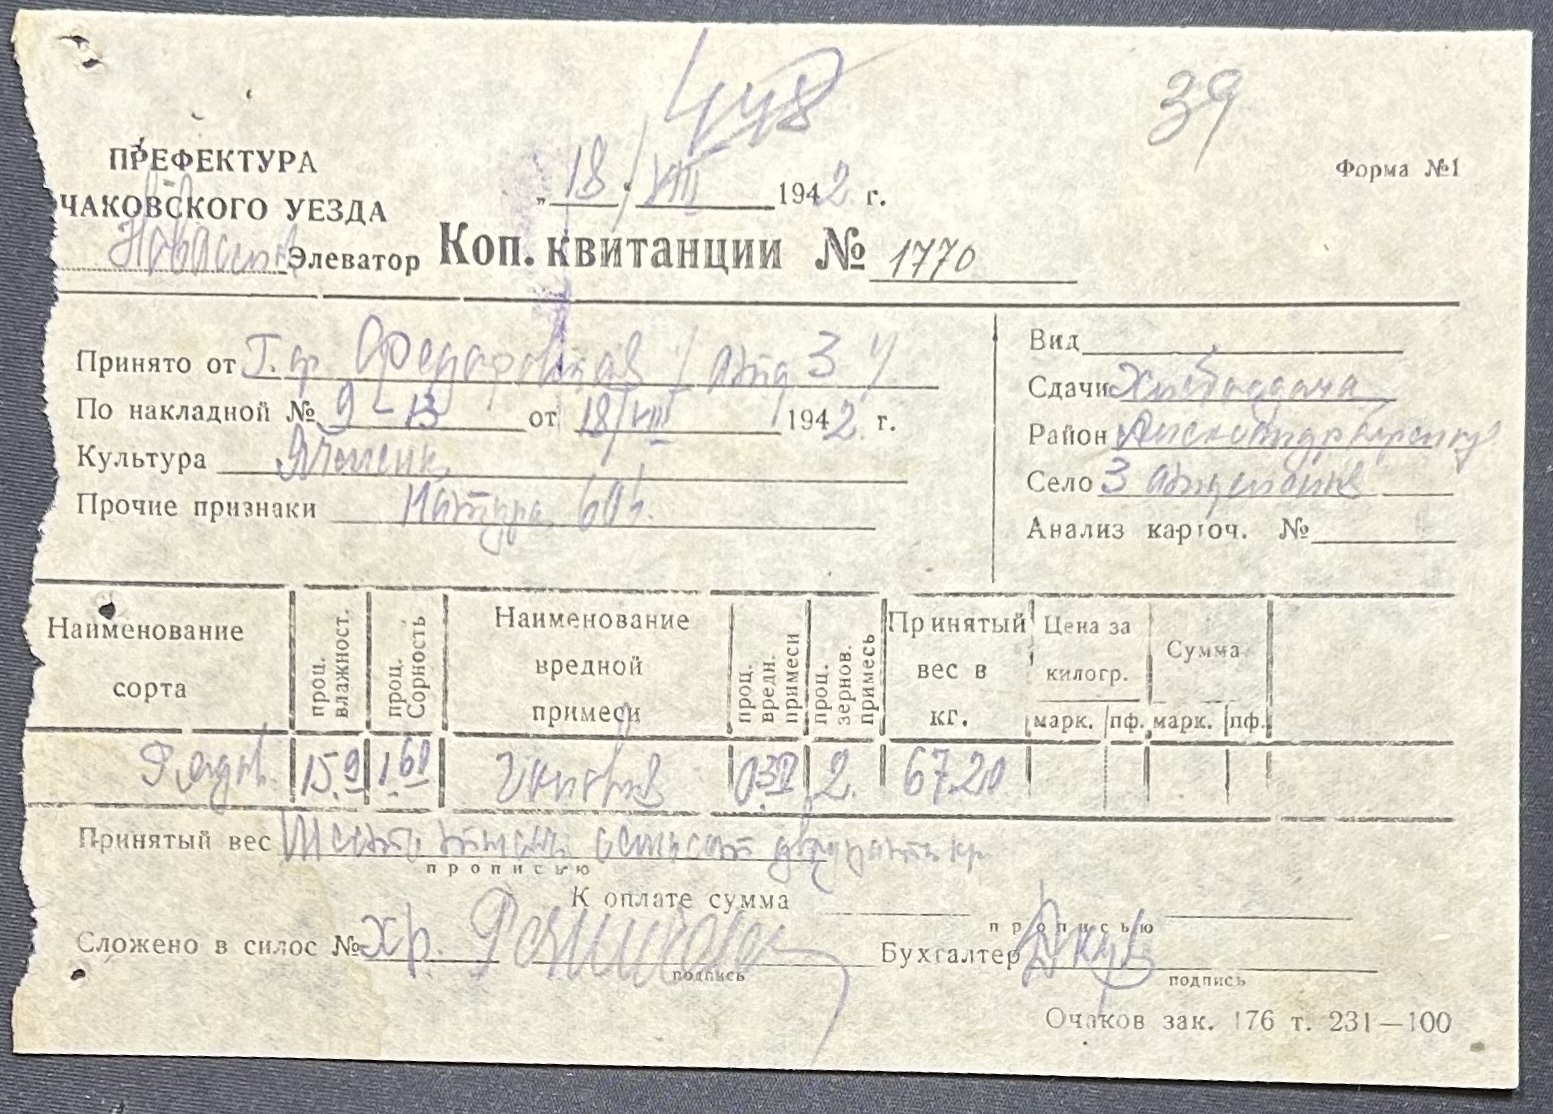 448
39
ПРЕФЕКТУРА
ЧАКОВСКОГО УЕЗДА
„18“ VIII 1942 г.
Форма №1
Элеватор
Коп. квитанции № 1770
Принято от
По накладной № 9-13 от 18/VIII 1942 г.
Культура Ячмень
Прочие признаки Натура 601.
Вид
Сдачи Хлебосдача
Район
Село 3 отделение
Анализ карточ. №
Наименование сорта
проц. влажност.
проц. Сорность
Наименование вредной примеси
проц. вредн. примеси
проц. зернов. примесь
Принятый вес в кг.
Цена за килогр.
Сумма
марк. пф. марк. пф.
Рядов. 15.9 1.60 032 2. 6720
Принятый вес Шесть тысяч семьсот двадцать кг
прописью
К оплате сумма
прописью
Сложено в силос № хр.
подпись
Бухгалтер
подпись
Очаков зак. 176 т. 231—100